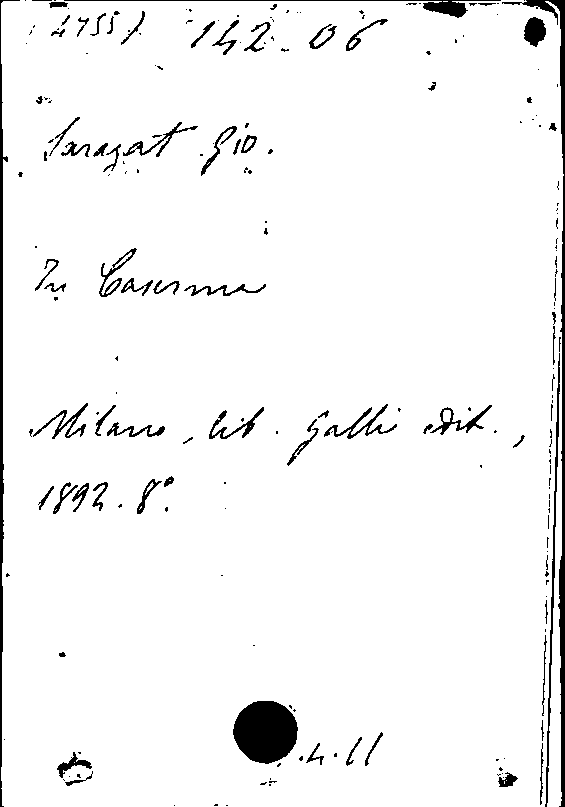 (4755) 142.06
Saragat Gio.
In Caserma
Milano, lib. Galli edit.,
1892. 8°.
.4.11